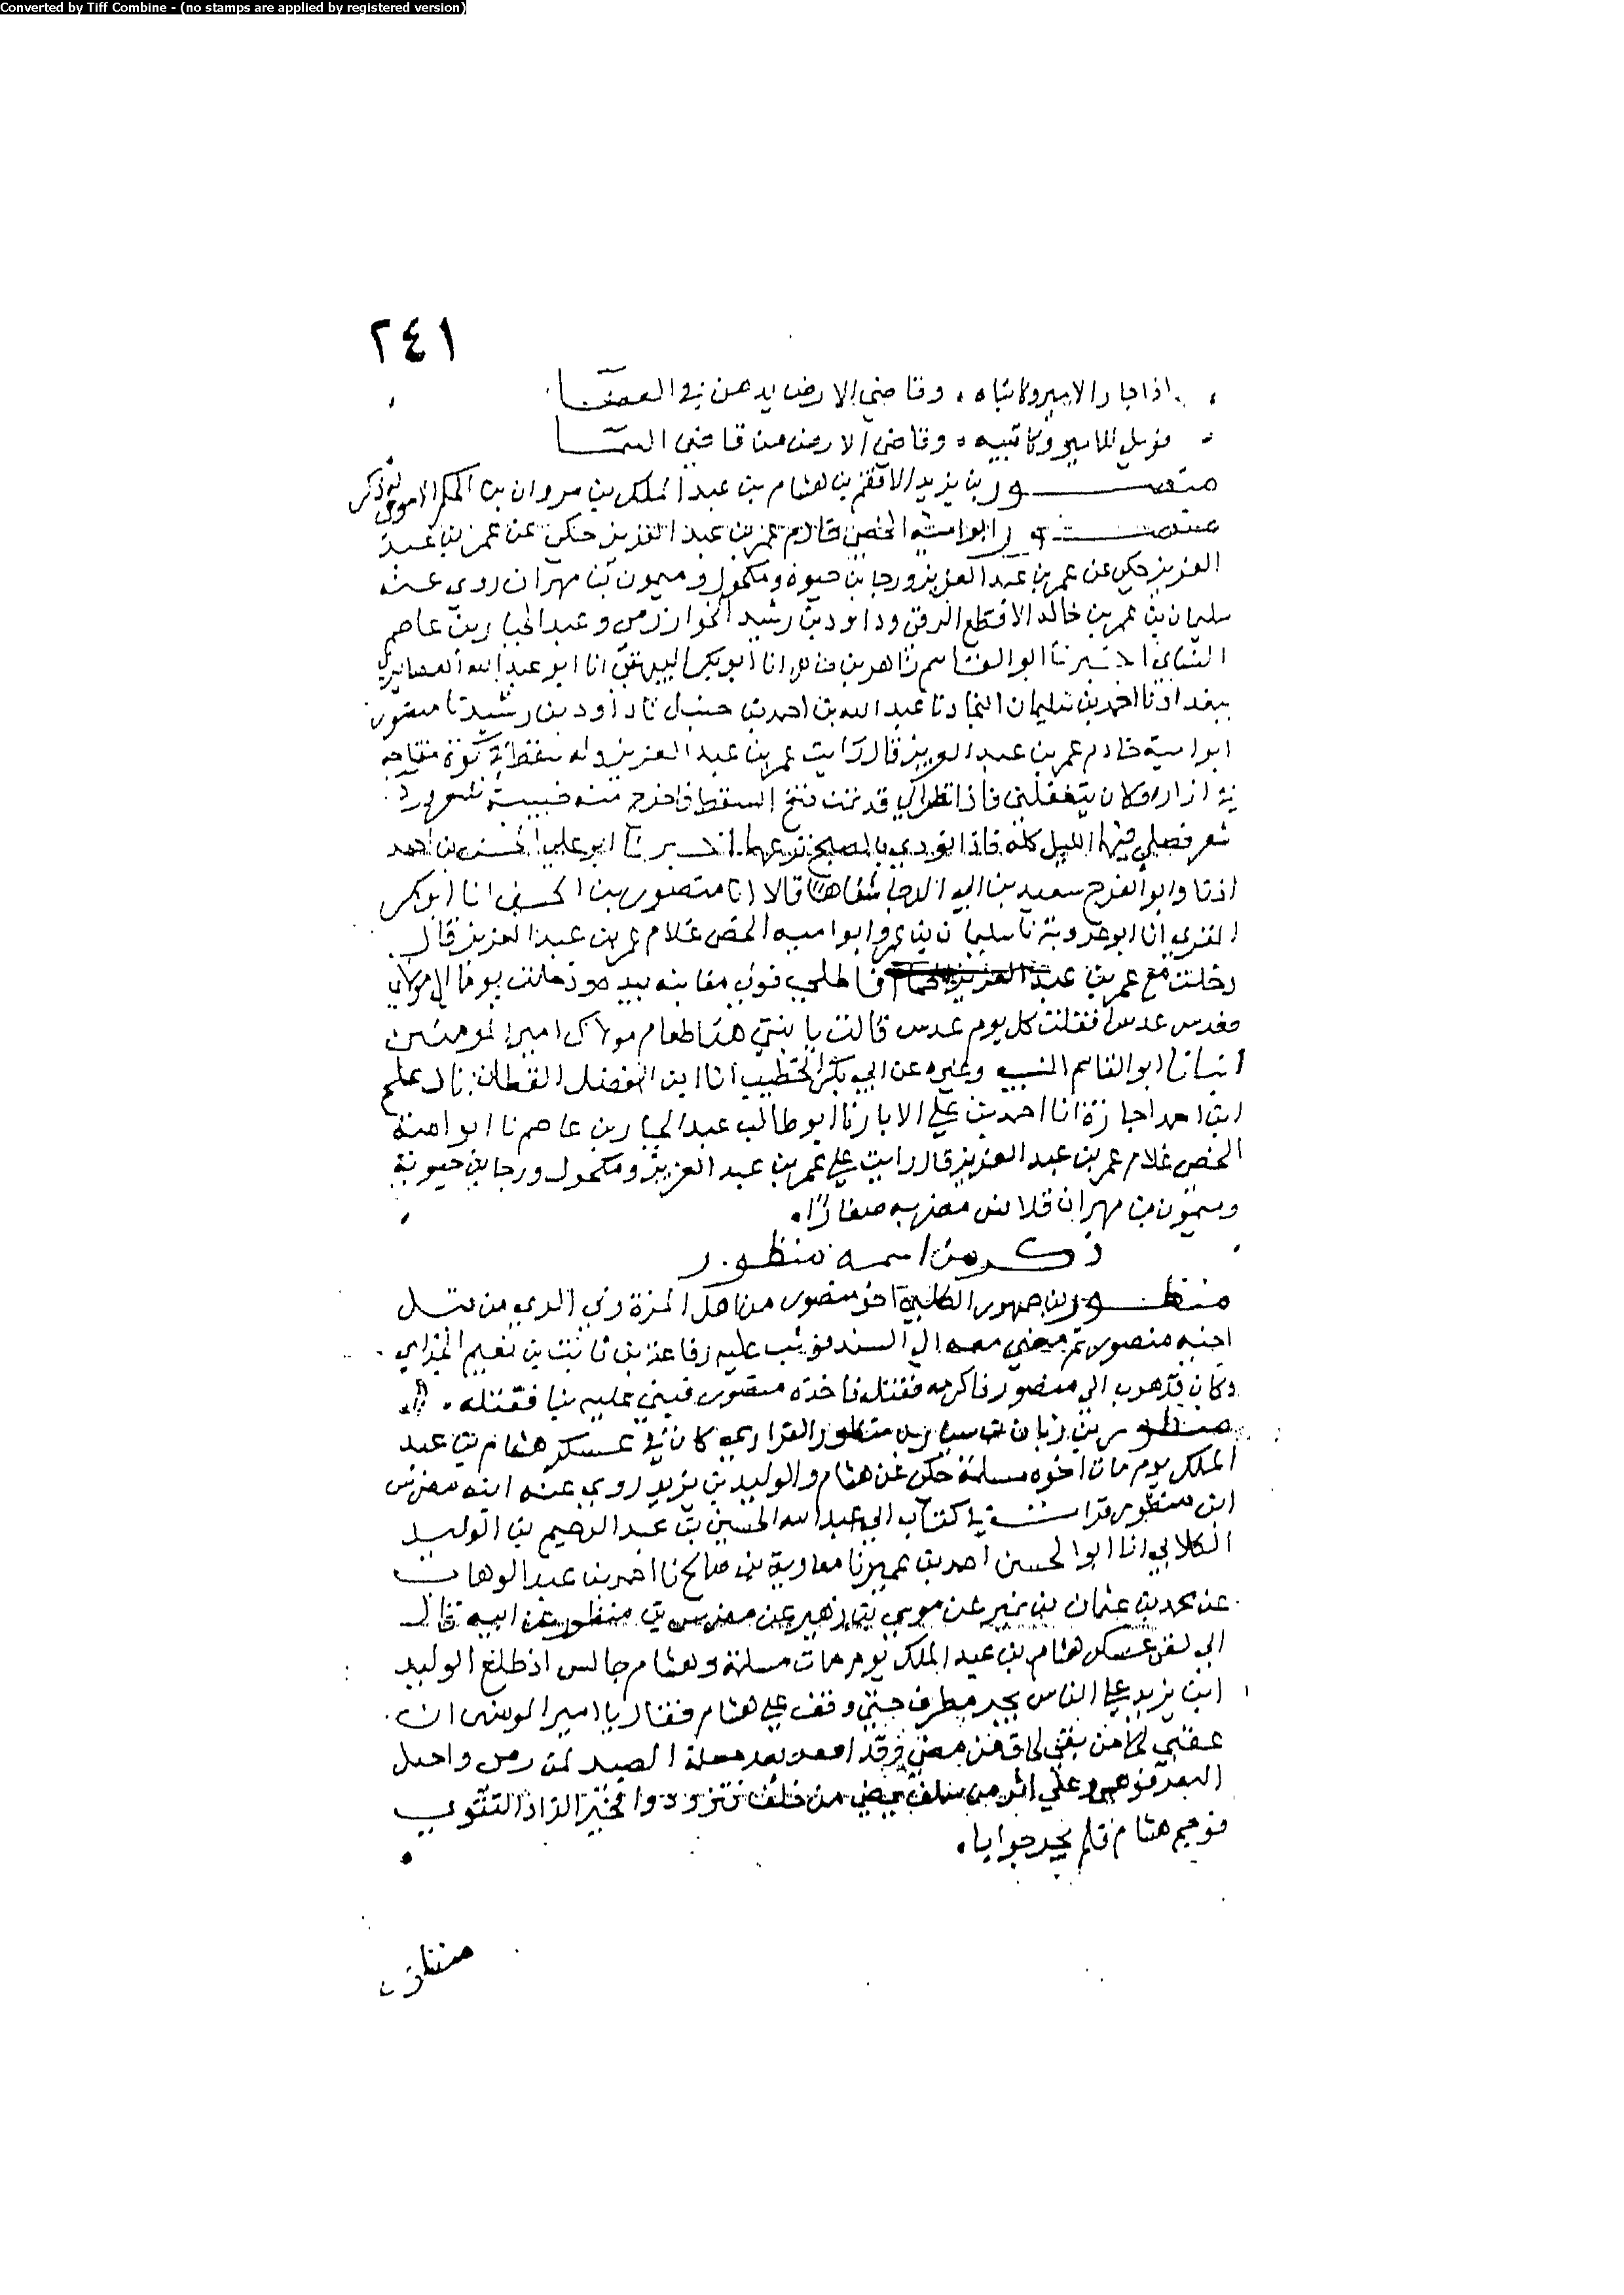 Converted by Tiff Combine - (no stamps are applied by registered version)
٢٤١
اذا جار الامير وكاتباه وقاضي الارض يدهن في القضا
فويل للامير وكاتبيه وقاضي الارض من قاضي السما
منصور بن يزيد الافقم بن هشام بن عبد الملك بن مروان بن الحكم الاموي له ذكر
منصور ابو امية الخصي خادم عمر بن عبد العزيز حكى عن عمر بن عبد
العزيز حكي عن عمر بن عبد العزيز ورجا بن حيوة ومكحول وميمون بن مهران روى عنه
سليمان بن عمر بن خالد الاقطع الرقي وداود بن رشيد الخوارزمي وعبد الجبار بن عاصم
النساي اخبرنا ابو القاسم زاهر بن طاهر انا ابو بكر البيهقي انا ابو عبد الله
ببغداد نا احمد بن سليمان النجاد نا عبد الله بن احمد بن حنبل نا داود بن رشيد نا منصور
ابو امية خادم عمر بن عبد العزيز قال رايت عمر بن عبد العزيز وله سفط فيه كوة مفتاحه
في ازاره وكان يتغفلني فاذا نظر الي قد نمت فتح السفط فاخرج منه جبيبة شعر وردا
شعر فصلي فيهما الليل كله فاذا نودي بالصبح نزعهما اخبرنا ابو علي الحسن بن احمد
اذنا وابو الفرج سعيد بن ابي الرجا شفاها قالا انا منصور بن الحسين انا ابو بكر
المقري انا ابو عروبة نا سليمان بن عمر نا ابو امية الخصي غلام عمر بن عبد العزيز قال
دخلت مع عمر بن عبد العزيز الحمام فاطلي فولي مغابنه بيده ودخلت يوما الى مولاتي
فغدتني عدسا فقلت كل يوم عدس قالت يا بني هذا طعام مولاك امير المومنين
انبانا ابو القاسم النسيب وغيره عن ابي بكر الخطيب انا ابن الفضل القطان نا دعلج
ابن احمد اجازة انا احمد بن علي الابار نا ابو طالب عبد الجبار بن عاصم نا ابو امية
الخصي غلام عمر بن عبد العزيز قال رايت علي عمر بن عبد العزيز ومكحول ورجا بن حيوة
وميمون بن مهران قلانس مضربه صغارا
ذكر من اسمه منظور
منظور بن جمهور الكلبي اخو منصور من اهل المزة ولي الري من قبل
اخيه منصور ثم مضي معه الي السند فوثب عليه رفاعة بن ثابت بن نعيم الجذامي
وكان قد هرب الي منصور فاكرمه فقتله فاخذه منصور فبني عليه بنا فقتله
منظور بن زبان بن سيار بن منظور الفزاري كان في عسكر هشام بن عبد
الملك يوم مات اخوه مسلمة حكى عن هشام والوليد بن يزيد روى عنه ابنه مضرس
ابن منظور قرات في كتاب ابي عبد الله الحسين بن عبد الرحيم بن الوليد
الكلابي انا ابو الحسن احمد بن عمير نا معاوية بن صالح نا احمد بن عبد الوهاب
عن محمد بن عثمان بن نمير عن موسى بن زهير عن مضرس بن منظور عن ابيه قال
اني لفي عسكر هشام بن عبد الملك يوم مات مسلمة وهشام جالس اذ طلع الوليد
ابن يزيد علي الناس يجر مطرف حتي وقف علي هشام فقال يا امير المومنين ان
عقبي من بقي لحاق من مضى وقد اقفر بعد مسلمة الصيد لمن رمى واختل
الثغر فوهى وعلي اثر من سلف يمضي من خلف فتزودوا فخير الزاد التقوى
فوجم هشام فلم يحر جوابا